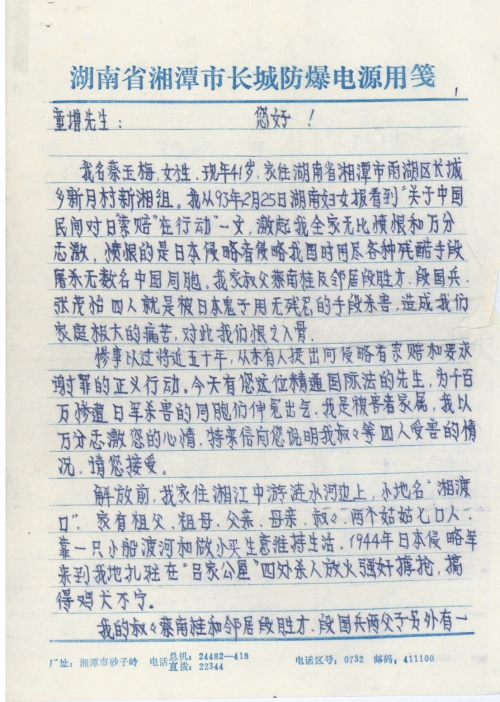 湖南省湘潭市长城防爆电源用笺
1
童增先生： 您好！
我名蔡玉梅，女性，现年41岁，家住湖南省湘潭市雨湖区长城
乡新月村新湘组。我从93年2月25日湖南妇女报看到“关于中国
民间对日索赔”在行动”一文，激起我全家无比愤恨和万分
志激，愤恨的是日本侵略者侵略我国时用尽各种残酷手段
屠杀无数名中国同胞。我家叔父蔡南桂反邻居段胜才、段国兵、
张茂怡四人就是被日本鬼子用无残忍的手段杀害，造成我们
家庭极大的痛苦，对此我们恨之入骨。
惨事以过将近五十年，从未有人提出向侵略者索赔和要求
谢罪的正义行动。今天有您这位精通国际法的先生，为千百
万惨遭日军杀害的同胞们伸冤出气，我是被害者家属，我以
万分志激您的心情，特来信向您说明我叔々等四人受害的情
况，请您接受。
解放前，我家住湘江中游涟水河边上，小地名“湘渡
口”，家有祖父、祖母、父亲、母亲、叔々、两个姑姑七口人，
靠一只小船渡河和做小买生意维持生活，1944年日本侵略军
来到我地扎驻在“吕家公屋”四处杀人放火强奸掳抢，搞
得鸡犬不宁。
我的叔々蔡南桂和邻居段胜才、段国兵两父子另外有一
厂址：湘潭市砂子岭 电话 总机：24482—418 直拨：22344 电话区号：0732 邮码：411100